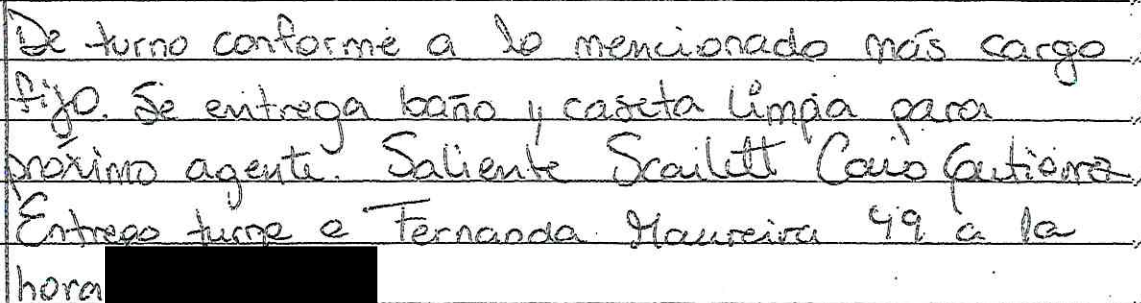 De turno conforme a lo mencionado más cargo
fijo. Se entrega baño y caseta limpia para
próximo agente. Saliente Scailett Caio Gutierrez
Entrego turno a Fernanda Maureira 49 a la
hora